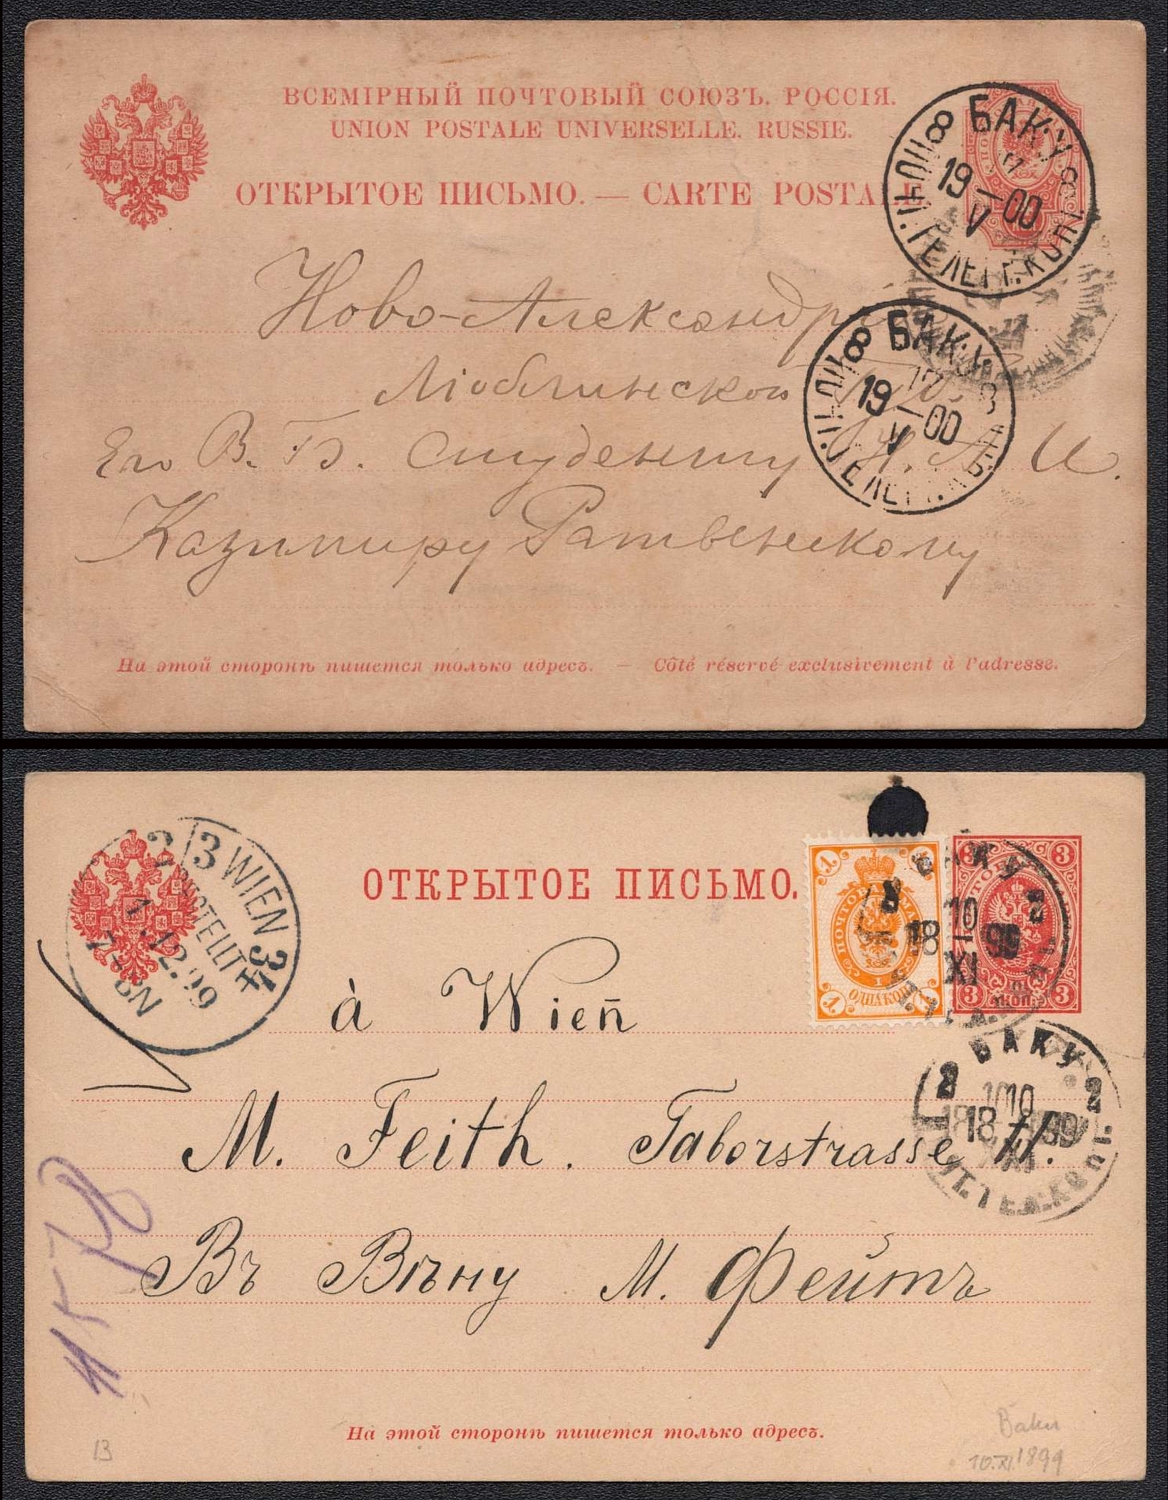 ВСЕМІРНЫЙ ПОЧТОВЫЙ СОЮЗЪ. РОССІЯ.
UNION POSTALE UNIVERSELLE. RUSSIE.
ОТКРЫТОЕ ПИСЬМО. — CARTE POSTALE
8 БАКУ 8
19 — 00
V
П. ТЕЛЕГ. КОН
Ново-Александрія
Люблинской
8 БАКУ 8
17
19 — 00
V
Его В. Б. Студенту Н. А. И.
Казимиру Ратвенскому
На этой сторонѣ пишется только адресъ. — Côté réservé exclusivement à l'adresse.
3 WIEN 3
BESTELLT
1.12.99
ОТКРЫТОЕ ПИСЬМО.
1 1
ПОЧТОВАЯ МАРКА
ОДНА КОП.
3 3
3 КОП. 3
2 БАКУ 2
10
18 — 99
XI
à Wien
M. Feith. Taborstrasse
2 БАКУ 2
10
18 99
Въ Вѣну М. Фейтъ
На этой сторонѣ пишется только адресъ.
13
Baku
10.XI.1899